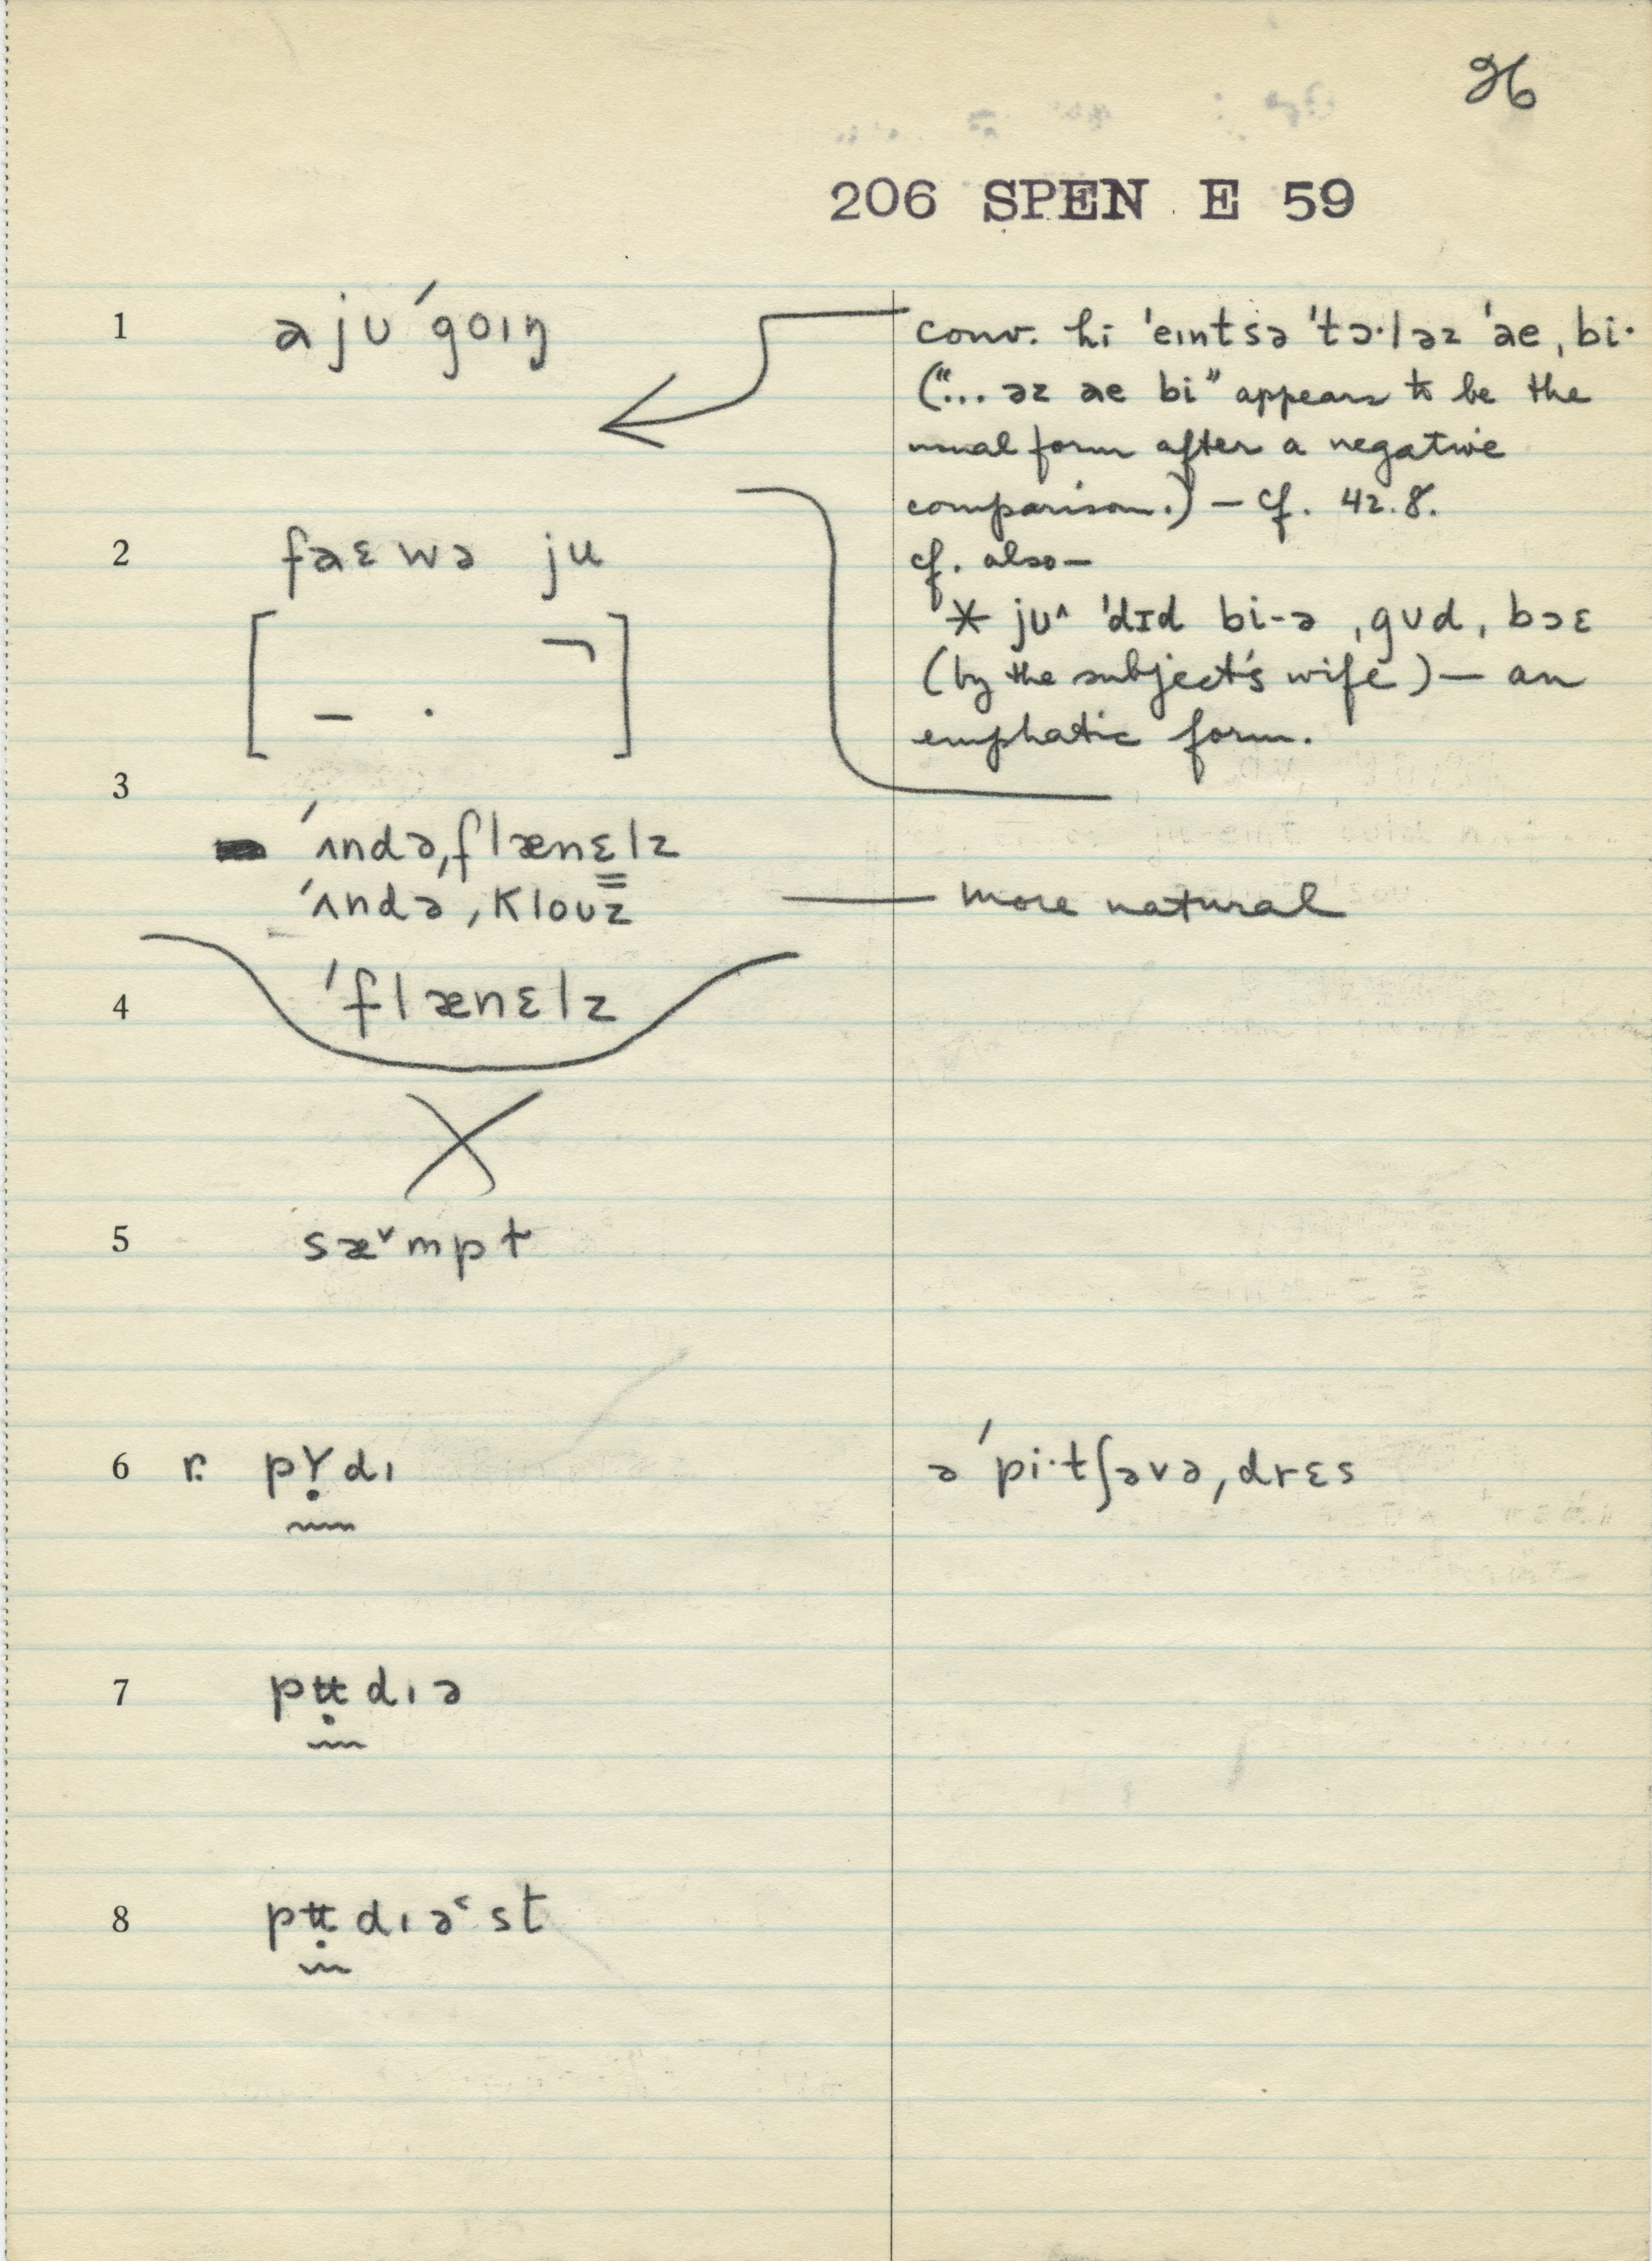 26
206 SPEN E 59
1 aju ˈgoɪŋ
conv. hi ˈeɪntsə ˈtɔ·ləz ˈae ˌbi·
("... əz ae bi" appears to be the
usual form after a negative
comparison.) — cf. 42.8.
cf. also—
2 faɛwə ju
* jʊ^ ˈdɪd bi-ə ˌgʊd ˌbɔɛ
(by the subject's wife) — an
emphatic form.
3
ˈʌndəˌflænɛlz
ˈʌndəˌklouz — more natural
4 ˈflænɛlz
5 sæ˅mpt
6 r. pʏ̣dɪ
ə ˈpi·tʃəvəˌdrɛs
7 pʉ̣dɪə
8 pʉ̣dɪə˂st